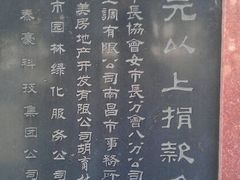 元以上捐款
長協會女市長分會八分公司
調有限公司南昌市事務所
美房地产开发有限公司胡育
市园林绿化服务公司
泰豪科技集团公司